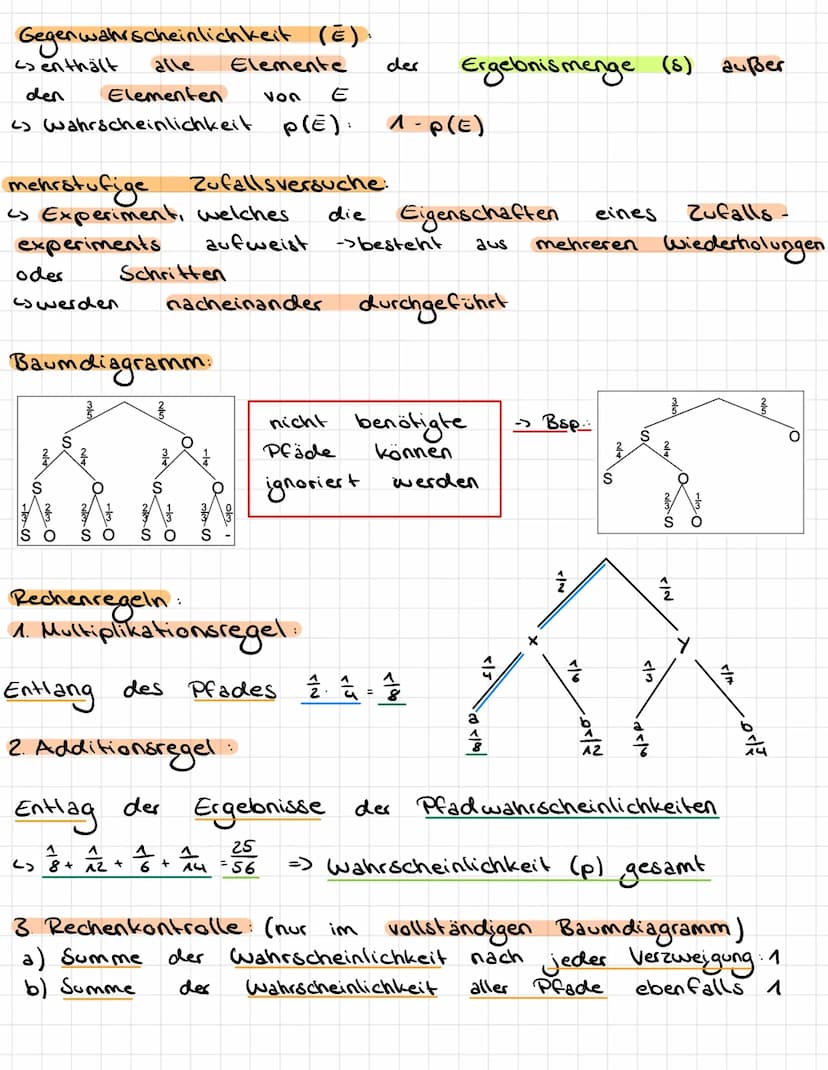 Gegenwahrscheinlichkeit (Ē):
↳ enthält alle Elemente der Ergebnismenge (S) außer
den Elementen von E
↳ Wahrscheinlichkeit p(Ē): 1 - p(E)
mehrstufige Zufallsversuche:
↳ Experiment, welches die Eigenschaften eines Zufalls-
experiments aufweist -> besteht aus mehreren Wiederholungen
oder Schritten
↳ werden nacheinander durchgeführt
Baumdiagramm:
3/5 2/5
S O
2/4 2/4 3/4 1/4
S O S O
1/3 2/3 2/3 1/3 2/3 1/3 3/3 0/3
S O S O S O S -
nicht benötigte
Pfäde können
ignoriert werden
-> Bsp.:
3/5 2/5
S O
2/4 2/4
S O
2/3 1/3
S O
Rechenregeln:
1. Multiplikationsregel:
Entlang des Pfades 1/2 · 1/4 = 1/8
1/2 1/2
x y
1/4 1/6 1/3 1/7
a b a b
1/8 1/12 1/6 1/14
2. Additionsregel:
Entlag der Ergebnisse der Pfadwahrscheinlichkeiten
↳ 1/8 + 1/12 + 1/6 + 1/14 = 25/56 => Wahrscheinlichkeit (p) gesamt
3 Rechenkontrolle: (nur im vollständigen Baumdiagramm)
a) Summe der Wahrscheinlichkeit nach jeder Verzweigung: 1
b) Summe der Wahrscheinlichkeit aller Pfade ebenfalls 1